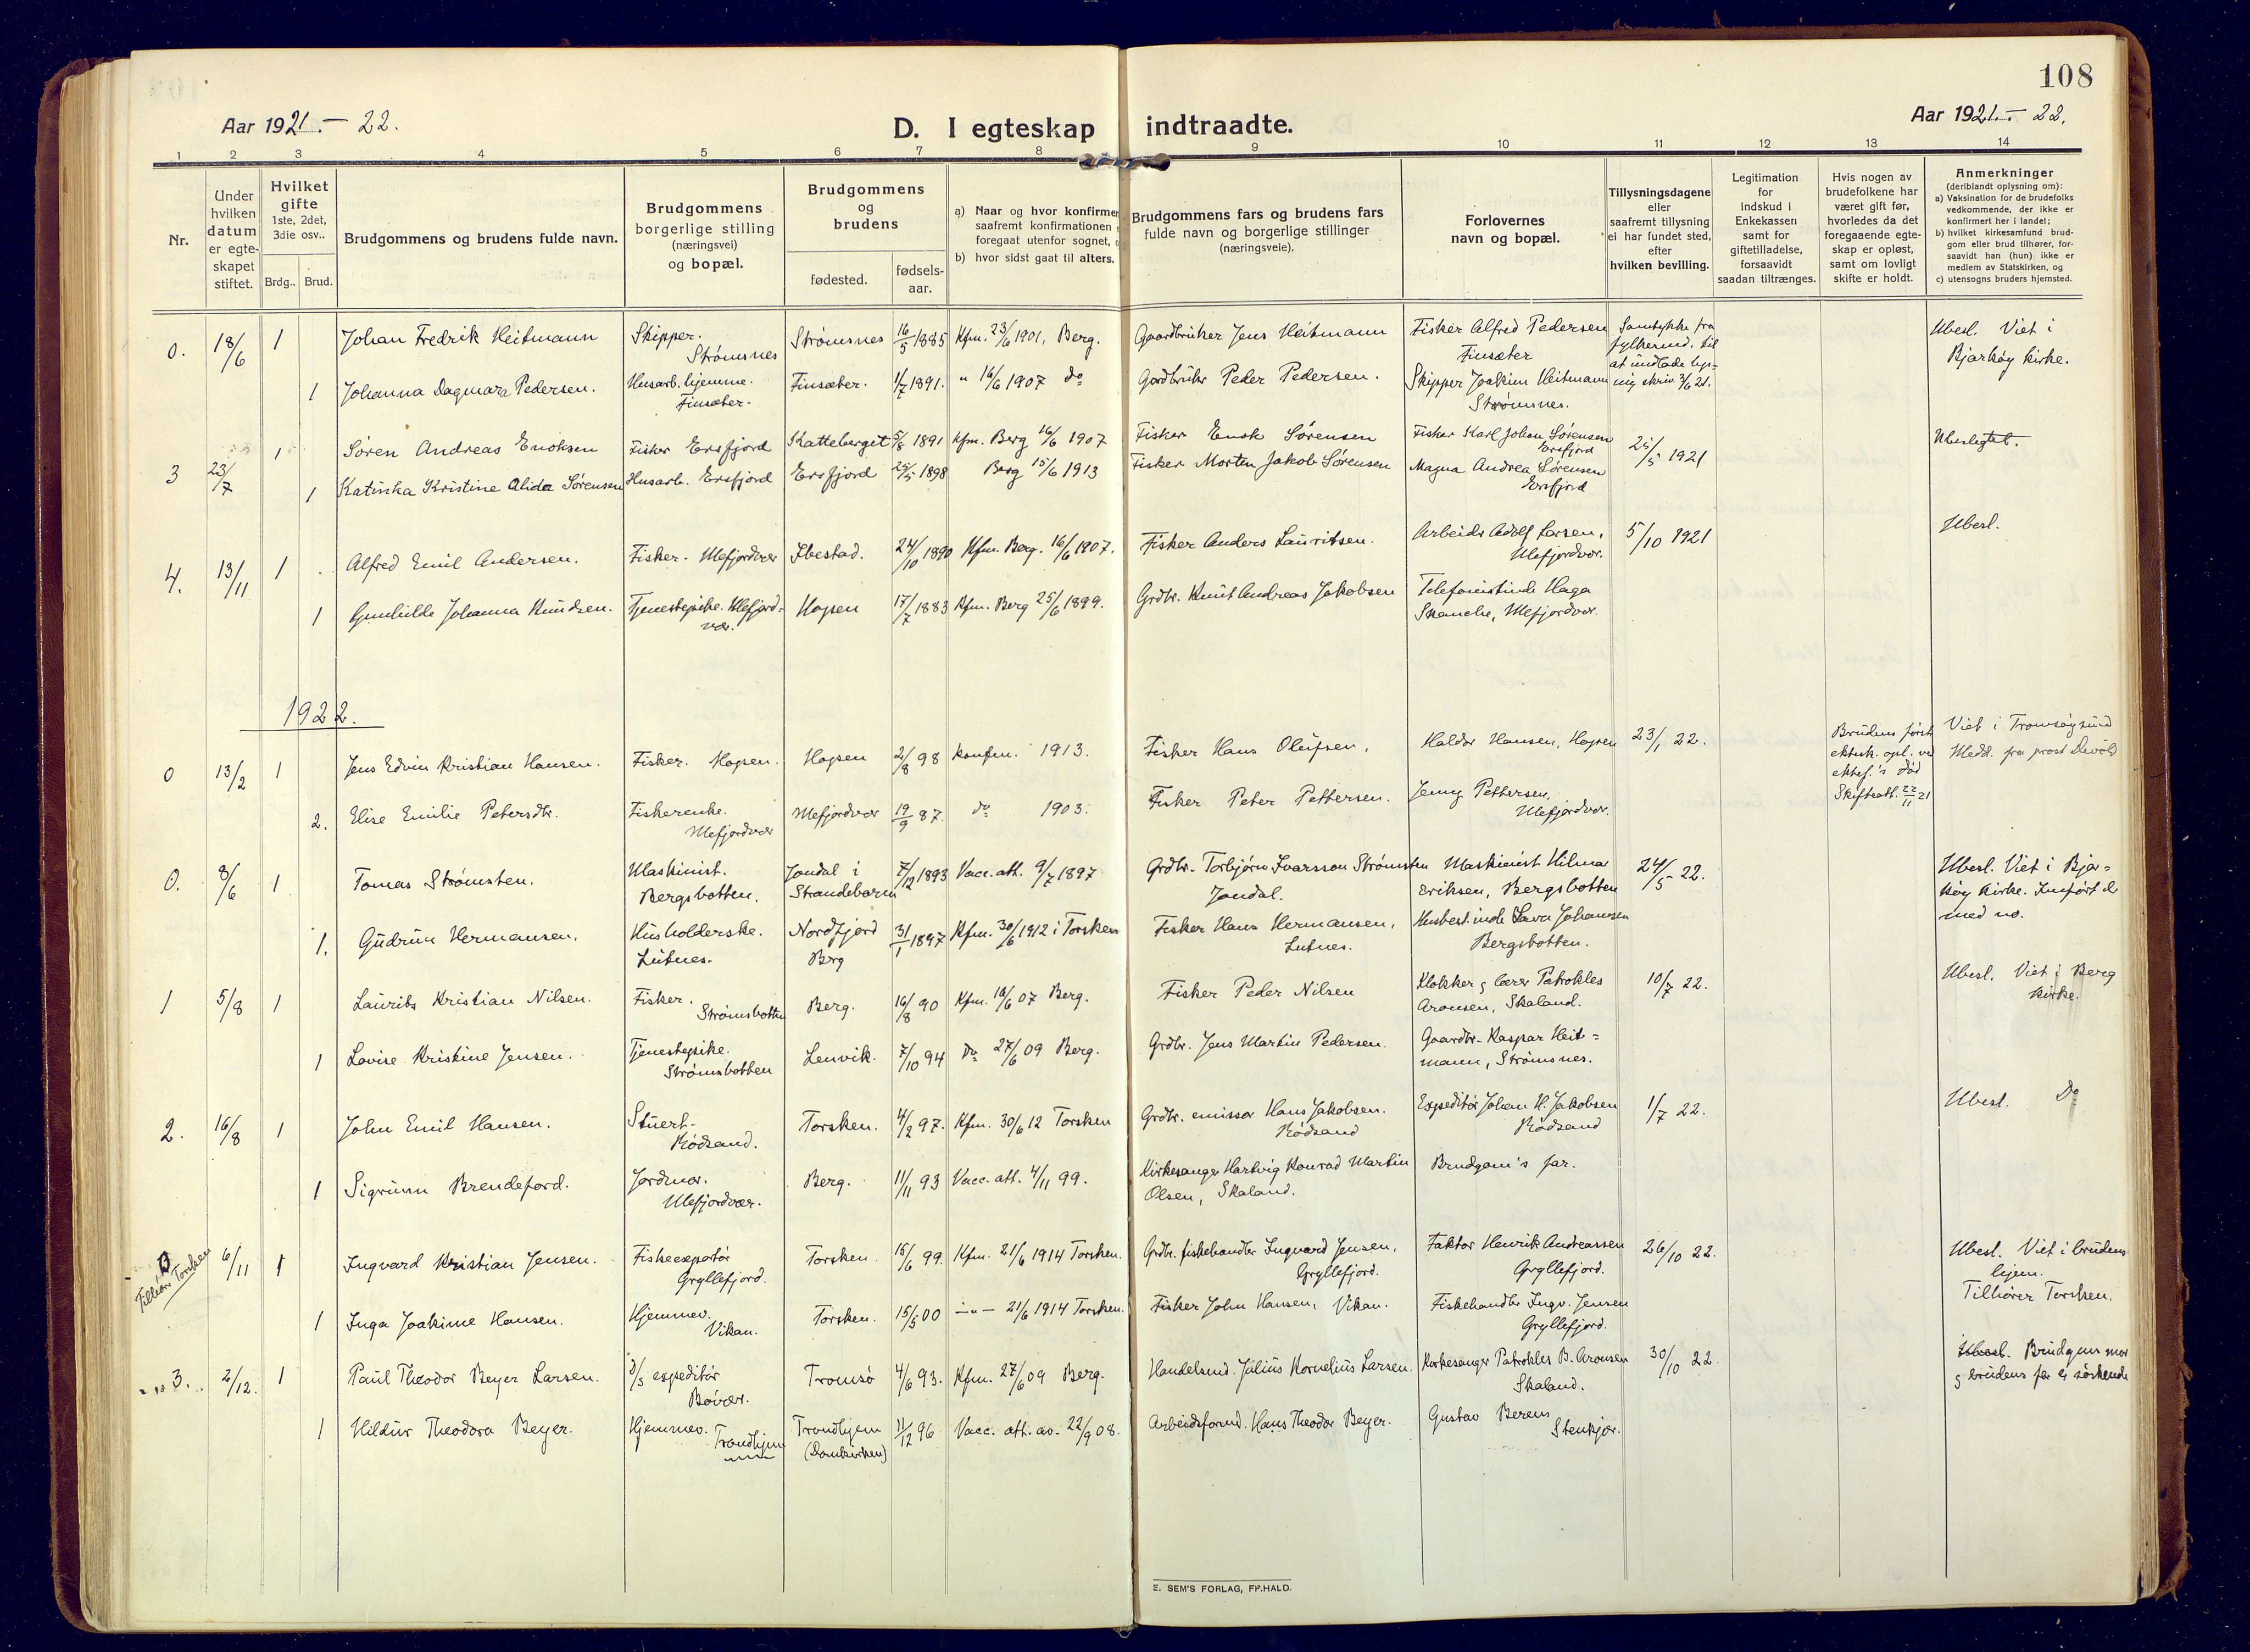 108
Aar 1921.- 22.
D. I egteskap indtraadte.
Aar 1921.- 22.
1 2 3 4 5 6 7 8 9 10 11 12 13 14
Nr.
Under hvilken datum er egte-skapet stiftet.
Hvilket gifte 1ste, 2det, 3die osv..
Brdg.. Brud.
Brudgommens og brudens fulde navn.
Brudgommens borgerlige stilling (næringsvei) og bopæl.
Brudgommens og brudens
fødested.
fødsels-aar.
a) Naar og hvor konfirmer
saafremt konfirmationen
foregaat utenfor sognet,
b) hvor sidst gaat til alters.
Brudgommens fars og brudens fars fulde navn og borgerlige stillinger (næringsveie).
Forlovernes navn og bopæl.
Tillysningsdagene eller saafremt tillysning ei har fundet sted, efter hvilken bevilling.
Legitimation for indskud i Enkekassen samt for giftetilladelse, forsaavidt saadan tiltrænges.
Hvis nogen av brudefolkene har været gift før, hvorledes da det foregaaende egte-skap er opløst, samt om lovligt skifte er holdt.
Anmerkninger
(deriblandt oplysning om):
a) Vaksination for de brudefolks vedkommende, der ikke er konfirmert her i landet;
b) hvilket kirkesamfund brud-gom eller brud tilhører, for-saavidt han (hun) ikke er medlem av Statskirken, og
c) utensogns bruders hjemsted.
0. 18/6 1 Johan Fredrik Heitmann Skipper. Strømsnes Strømsnes 16/5 1885 Kfm. 23/6 1901, Berg. Gaardbruker Jens Heitmann Fisker Alfred Pedersen Finsæter Samtykke fra fylkesmd. til at undlade lys-ning skriv. 3/6 21. Ubesl. Viet i Bjarkøy kirke.
1 Johanna Dagmara Pedersen. Husarb. hjemme. Finsæter. Finsæter. 1/7 1891. " 16/6 1907 do Gardbruker Peder Pedersen. Skipper Joakim Heitmann Strømsnes.
3 23/7 1 Søren Andreas Enoksen Fisker Ersfjord Katteberget 5/8 1891 Kfm. Berg 16/6 1907 Fisker Enok Sørensen Fisker Karl Johan Sørensen Ersfjord 25/5 1921 Ubeslegtet.
1 Katinka Kristine Alida Sørensen Husarb. Ersfjord Ersfjord 25/5 1898 Berg 15/6 1913 Fisker Morten Jakob Sørensen Magna Andrea Sørensen Ersfjord
4. 13/11 1 Alfred Emil Andersen. Fisker. Mefjordvær Ibestad. 24/10 1890 Kfm. Berg. 16/6 1907. Fisker Anders Lauritsen. Arbeider Adolf Larsen, Mefjordvær. 5/10 1921 Ubesl.
1 Gunhilde Johanna Knudsen. Tjenestepike. Mefjord-vær. Hopen 17/7 1883 Kfm. Berg 25/6 1899. Grdbr. Knut Andreas Jakobsen Telefonistinde Haga Skanche, Mefjordvær.
1922.
0 13/2 1 Jens Edvin Kristian Hansen. Fisker. Hopen. Hopen 2/8 98 konfm. 1913. Fisker Hans Olufsen, Haldor Hansen, Hopen 23/1 22. Brudens første ektesk. opl. ved ektef.'s død Skifteatt. 22/11 21 Viet i Tromsøysund Medd. fra prost Devold
2. Elise Emilie Petersdtr. Fiskerenke. Mefjordvær Mefjordvær 19/9 87. do 1903. Fisker Peter Pettersen. Jenny Pettersen, Mefjordvær.
0. 8/6 1 Tomas Strømsten. Maskinist. Bergsbotten. Jondal i Strandebarm 7/12 1893 Vacc. att. 9/7 1897 Grdbr. Torbjørn Ivarsson Strømsten Jondal. Maskinist Hilmar Eriksen, Bergsbotten 24/5 22. Ubesl. Viet i Bjar-køy kirke. Indført der med no.
1. Gudrun Hermansen. Husholderske. Lutnes. Nordfjord Berg 31/1 1897 Kfm. 30/6 1912 i Torsken Fisker Hans Hermansen, Lutnes. Husbest.inde Laura Johansen Bergsbotten.
1 5/8 1 Laurits Kristian Nilsen. Fisker. Strømsbotten Berg. 16/8 90 Kfm. 16/6 07 Berg. Fisker Peder Nilsen Klokker & lærer Patrokles Aronsen, Skaland. 10/7 22. Ubesl. Viet i Berg kirke.
1 Lovise Kristine Jensen. Tjenestepike. Strømsbotten Lenvik. 7/10 94 Do 27/6 09 Berg. Grdbr. Jens Martin Pedersen. Gaardbr. Kaspar Heit=mann, Strømsnes.
2. 16/8 1 John Emil Hansen. Stuert. Rödsand. Torsken. 4/2 97. Kfm. 30/6 12 Torsken Grdbr. emissær Hans Jakobsen. Rödsand Expeditør Johan H. Jakobsen Rödsand 1/7 22. Ubesl. Do
1 Sigrunn Brendeford. Jordmor. Mefjordvær. Berg. 11/11 93 Vacc. att. 4/11 99. Kirkesanger Hartvig Konrad Martin Olsen, Skaland. Brudgom's far.
0 Tilhører Torsken 6/11 1 Ingvard Kristian Jensen. Fiskeexportør Gryllefjord. Torsken. 15/6 99. Kfm. 21/6 1914 Torsken. Grdbr. fiskehandler Ingvard Jensen, Gryllefjord. Faktor Henrik Andreassen Gryllefjord. 26/10 22. Ubesl. Viet i brudens hjem. Tilhører Torsken.
1 Inga Joakime Hansen. Hjemmev. Vikan. Torsken. 15/5 00 -"- 21/6 1914 Torsken. Fisker John Hansen, Vikan. Fiskehandler Ingv. Jensen Gryllefjord.
3. 2/12. 1 Paul Theodor Beyer Larsen. D/S expeditör Bøvær. Tromsö 4/6 93. Kfm. 27/6 09 Berg. Handelsmd. Julius Kornelius Larsen. Kirkesanger Patrokles B. Aronsen Skaland. 30/10 22. Ubesl. Brudgums mor & brudens far er söskende
1 Hildur Theodora Beyer. Hjemmev. Trondhjem Trondhjem (Domkirken) 11/12 96 Vacc. att. av. 22/9 08. Arbeidsformd. Hans Theodor Beyer. Gustav Berens Stenkjær.
E. SEM'S FORLAG, FR.HALD.